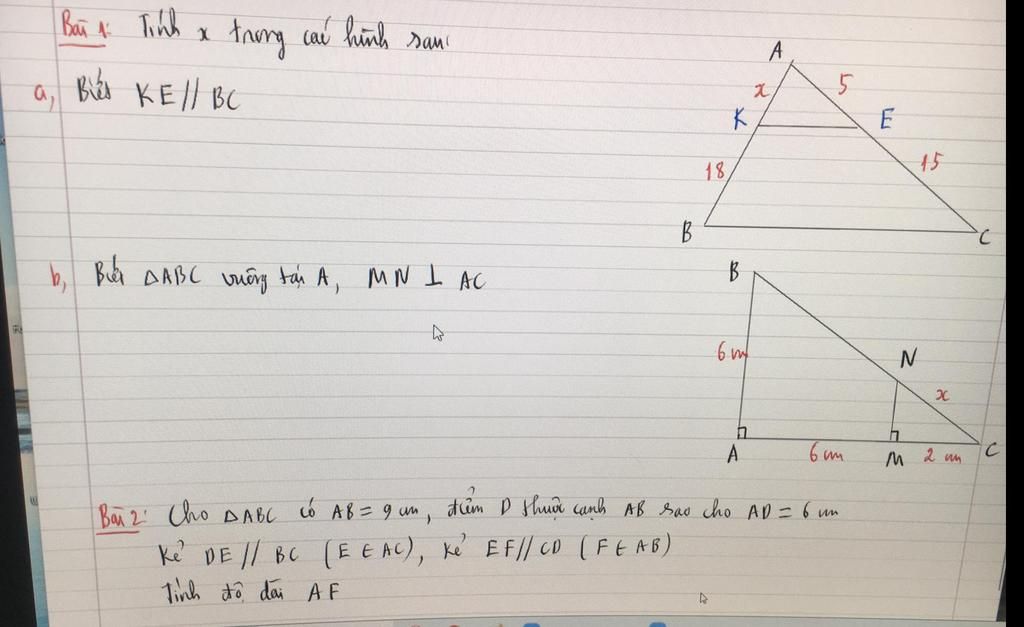 Bài 1: Tính x trong các hình sau:
a, Biết KE // BC
A
x
5
K
E
18
15
B
C
b, Biết △ABC vuông tại A, MN ⊥ AC
B
6 cm
N
x
A
6 cm
M
2 cm
C
Bài 2: Cho △ABC có AB = 9 cm, điểm D thuộc cạnh AB sao cho AD = 6 cm
Kẻ DE // BC (E ∈ AC), kẻ EF // CD (F ∈ AB)
Tính độ dài AF